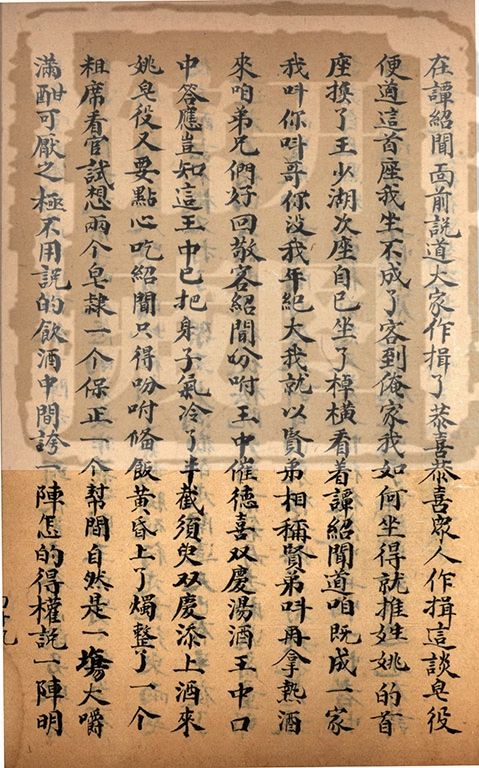 在譚紹聞面前説道大家作揖了恭喜恭喜眾人作揖這談皂役
便道這首座我坐不成了客到俺家我如何坐得就推姓姚的首
座換了王少湖次座自己坐了棹橫看着譚紹聞道咱既成一家
我呌你呌哥你没我年紀大我就以賢弟相稱賢弟呌再拿熱酒
來咱弟兄們好回敬客紹聞吩咐王中催德喜双慶湯酒王中口
中答應豈知這王中已把身子氣冷了半截須臾双慶添上酒來
姚皂役又要點心吃紹聞只得吩咐俻飯黄昏上了燭整了一个
粗席看官試想兩个皂隷一个保正一个幫閒自然是一塲大嚼
滿酣可厭之極不用説的飲酒中間誇一陣怎的得權説一陣明